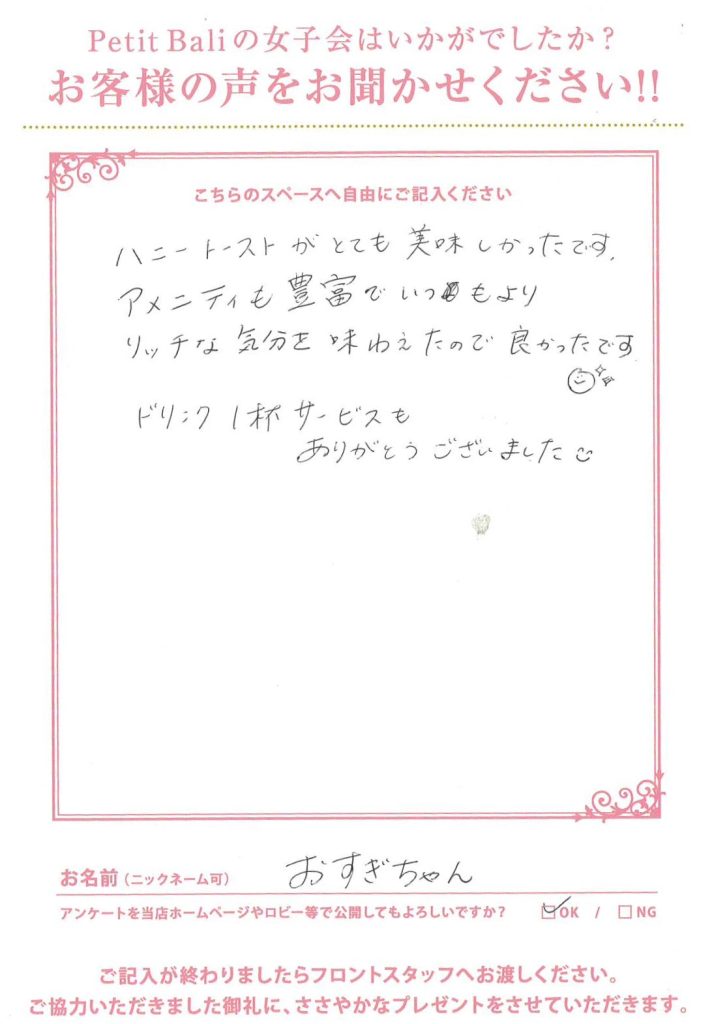 Petit Baliの女子会はいかがでしたか?
お客様の声をお聞かせください!!
こちらのスペースへ自由にご記入ください
ハニートーストがとても美味しかったです。
アメニティも豊富でいつもより
リッチな気分を味わえたので良かったです
ドリンク1杯サービスも
ありがとうございました
お名前(ニックネーム可) おすぎちゃん
アンケートを当店ホームページやロビー等で公開してもよろしいですか? OK / NG
ご記入が終わりましたらフロントスタッフへお渡しください。
ご協力いただきました御礼に、ささやかなプレゼントをさせていただきます。